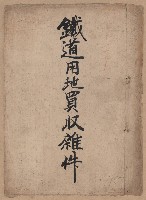 鐵道用地買収雜件